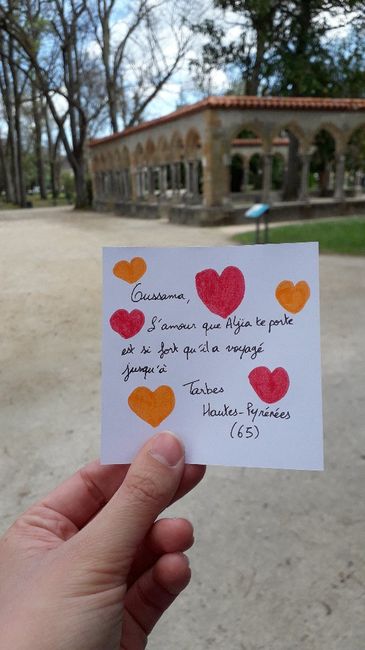 Oussama,
L'amour que Aljia te porte
est si fort qu'il a voyagé
jusqu'à
Tarbes
Hautes-Pyrénées
(65)